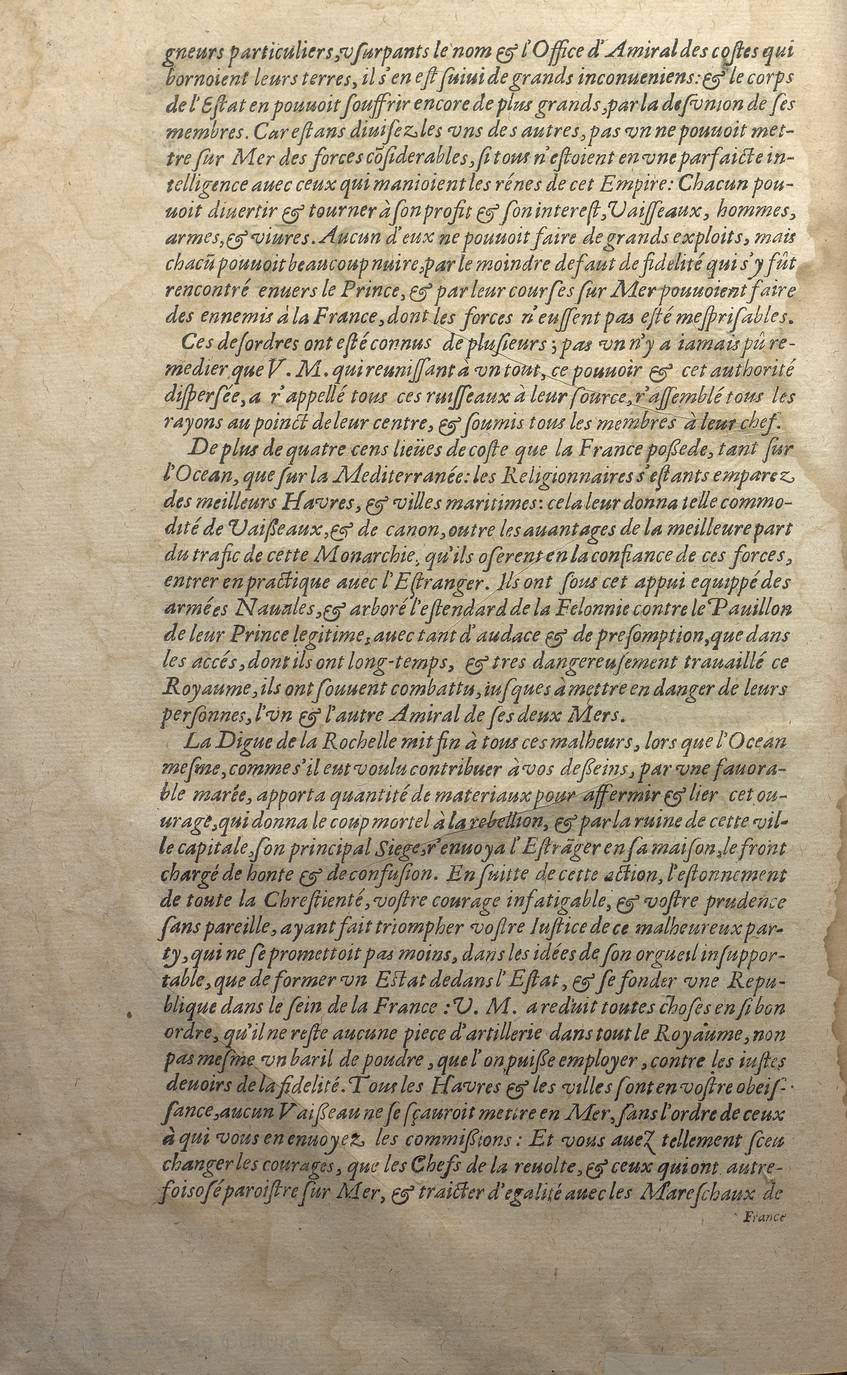 gneurs particuliers, vſurpants le nom & l'Office d'Amiral des coſtes qui
bornoient leurs terres, il s'en eſt ſuiui de grands inconueniens: & le corps
de l'Eſtat en pouuoit ſouffrir encore de plus grands, par la deſvnion de ſes
membres. Car eſtans diuiſez les vns des autres, pas vn ne pouuoit met-
tre ſur Mer des forces cõſiderables, ſi tous n'eſtoient en vne parfaicte in-
telligence auec ceux qui manioient les rénes de cet Empire: Chacun pou-
uoit diuertir & tourner à ſon profit & ſon intereſt, Vaiſſeaux, hommes,
armes, & viures. Aucun d'eux ne pouuoit faire de grands exploits, mais
chacũ pouuoit beaucoup nuire, par le moindre defaut de fidelité qui s'y fût
rencontré enuers le Prince, & par leur courſes ſur Mer pouuoient faire
des ennemis à la France, dont les forces n'euſſent pas eſté meſpriſables.
Ces deſordres ont eſté connus de pluſieurs; pas vn n'y a iamais pû re-
medier que V. M. qui reuniſſant à vn tout, ce pouuoir & cet authorité
diſperſée, a r'appellé tous ces ruiſſeaux à leur ſource, r'aſſemblé tous les
rayons au poinct de leur centre, & ſoumis tous les membres à leur chef.
De plus de quatre cens lieües de coſte que la France poßede, tant ſur
l'Ocean, que ſur la Mediterranée: les Religionnaires s'eſtants emparez
des meilleurs Havres, & villes maritimes: cela leur donna telle commo-
dité de Vaißeaux, & de canon, outre les auantages de la meilleure part
du trafic de cette Monarchie, qu'ils oſerent en la confiance de ces forces,
entrer en practique auec l'Eſtranger. Ils ont ſous cet appui equippé des
armées Nauales, & arboré l'eſtendard de la Felonnie contre le Pauillon
de leur Prince legitime, auec tant d'audace & de preſomption, que dans
les accés, dont ils ont long-temps, & tres dangereuſement trauaillé ce
Royaume, ils ont ſouuent combattu, iuſques à mettre en danger de leurs
perſonnes, l'vn & l'autre Amiral de ſes deux Mers.
La Digue de la Rochelle mit fin à tous ces malheurs, lors que l'Ocean
meſme, comme s'il eut voulu contribuer à vos deßeins, par vne fauora-
ble marée, apporta quantité de materiaux pour affermir & lier cet ou-
urage, qui donna le coup mortel à la rebellion, & par la ruine de cette vil-
le capitale, ſon principal Siege, r'enuoya l'Eſtrãger en ſa maiſon, le front
chargé de honte & de confuſion. En ſuitte de cette action, l'eſtonnement
de toute la Chreſtienté, voſtre courage infatigable, & voſtre prudence
ſans pareille, ayant fait triompher voſtre Iuſtice de ce malheureux par-
ty, qui ne ſe promettoit pas moins, dans les idées de ſon orgueil inſuppor-
table, que de former vn Eſtat dedans l'Eſtat, & ſe fonder vne Repu-
blique dans le ſein de la France: V. M. a reduit toutes choſes en ſi bon
ordre, qu'il ne reſte aucune piece d'artillerie dans tout le Royaume, non
pas meſme vn baril de poudre, que l'on puiße employer, contre les iuſtes
deuoirs de la fidelité. Tous les Havres & les villes ſont en voſtre obeiſ-
ſance, aucun Vaißeau ne ſe ſçauroit mettre en Mer, ſans l'ordre de ceux
à qui vous en enuoyez les commißions: Et vous auez tellement ſceu
changer les courages, que les Chefs de la reuolte, & ceux qui ont autre-
fois oſé paroiſtre ſur Mer, & traicter d'egalité auec les Mareſchaux de
France